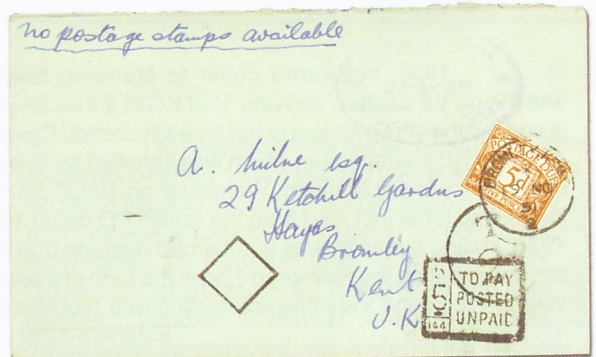 no postage stamps available
A. Milne esq.
29 Ketchill Gardns
Hayes
Bromley
Kent
U.K.
POSTAGE DUE
5D
FIVE PENCE
BROM
NO
51
5D
144
TO PAY
POSTED
UNPAID